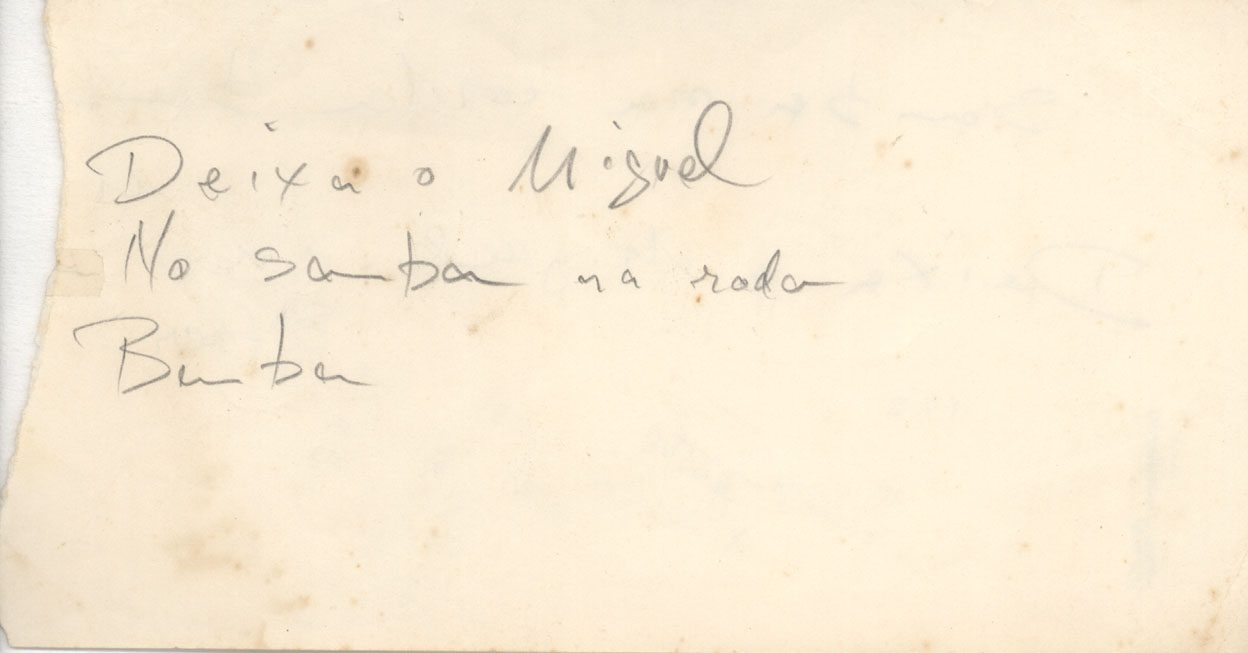 Deixa o Miguel
No samba na roda
Bamba